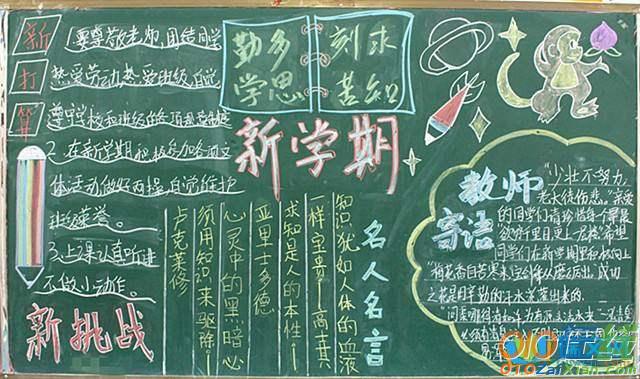 新
打
算
1.要尊敬老师,团结同学
热爱劳动,热爱班级,自觉
遵守学校和班级的各项规章
2.在新学期积极参加各项文
体活动,做好两操,自觉维护
班级荣誉。
3.上课认真听讲
不做小动作。
新挑战
勤多
学思
刻求
苦知
新学期
名人名言
知识犹如人体的血液
一样宝贵—高士其
求知是人的本性—
亚里士多德
心灵中的黑暗
须用知识来驱除!
卢克莱修
教师
寄语
"少壮不努力,
老大徒伤悲。"亲爱
的同学们请珍惜每
"欲穷千里目更上一层楼"希望
同学们在新学期里
"梅花香自苦寒来,宝剑锋从磨砺出。成功
之花是用辛勤的汗水浇灌出来的.
"问渠哪得清如许
010ZaiXian.Com